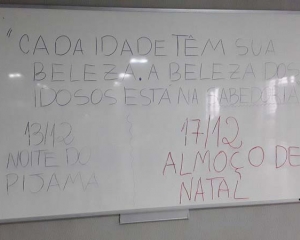 "CADA IDADE TÊM SUA
BELEZA. A BELEZA DOS
IDOSOS ESTÁ NA SABEDORIA
13/12
NOITE DO
PIJAMA
17/12
ALMOÇO DE
NATAL